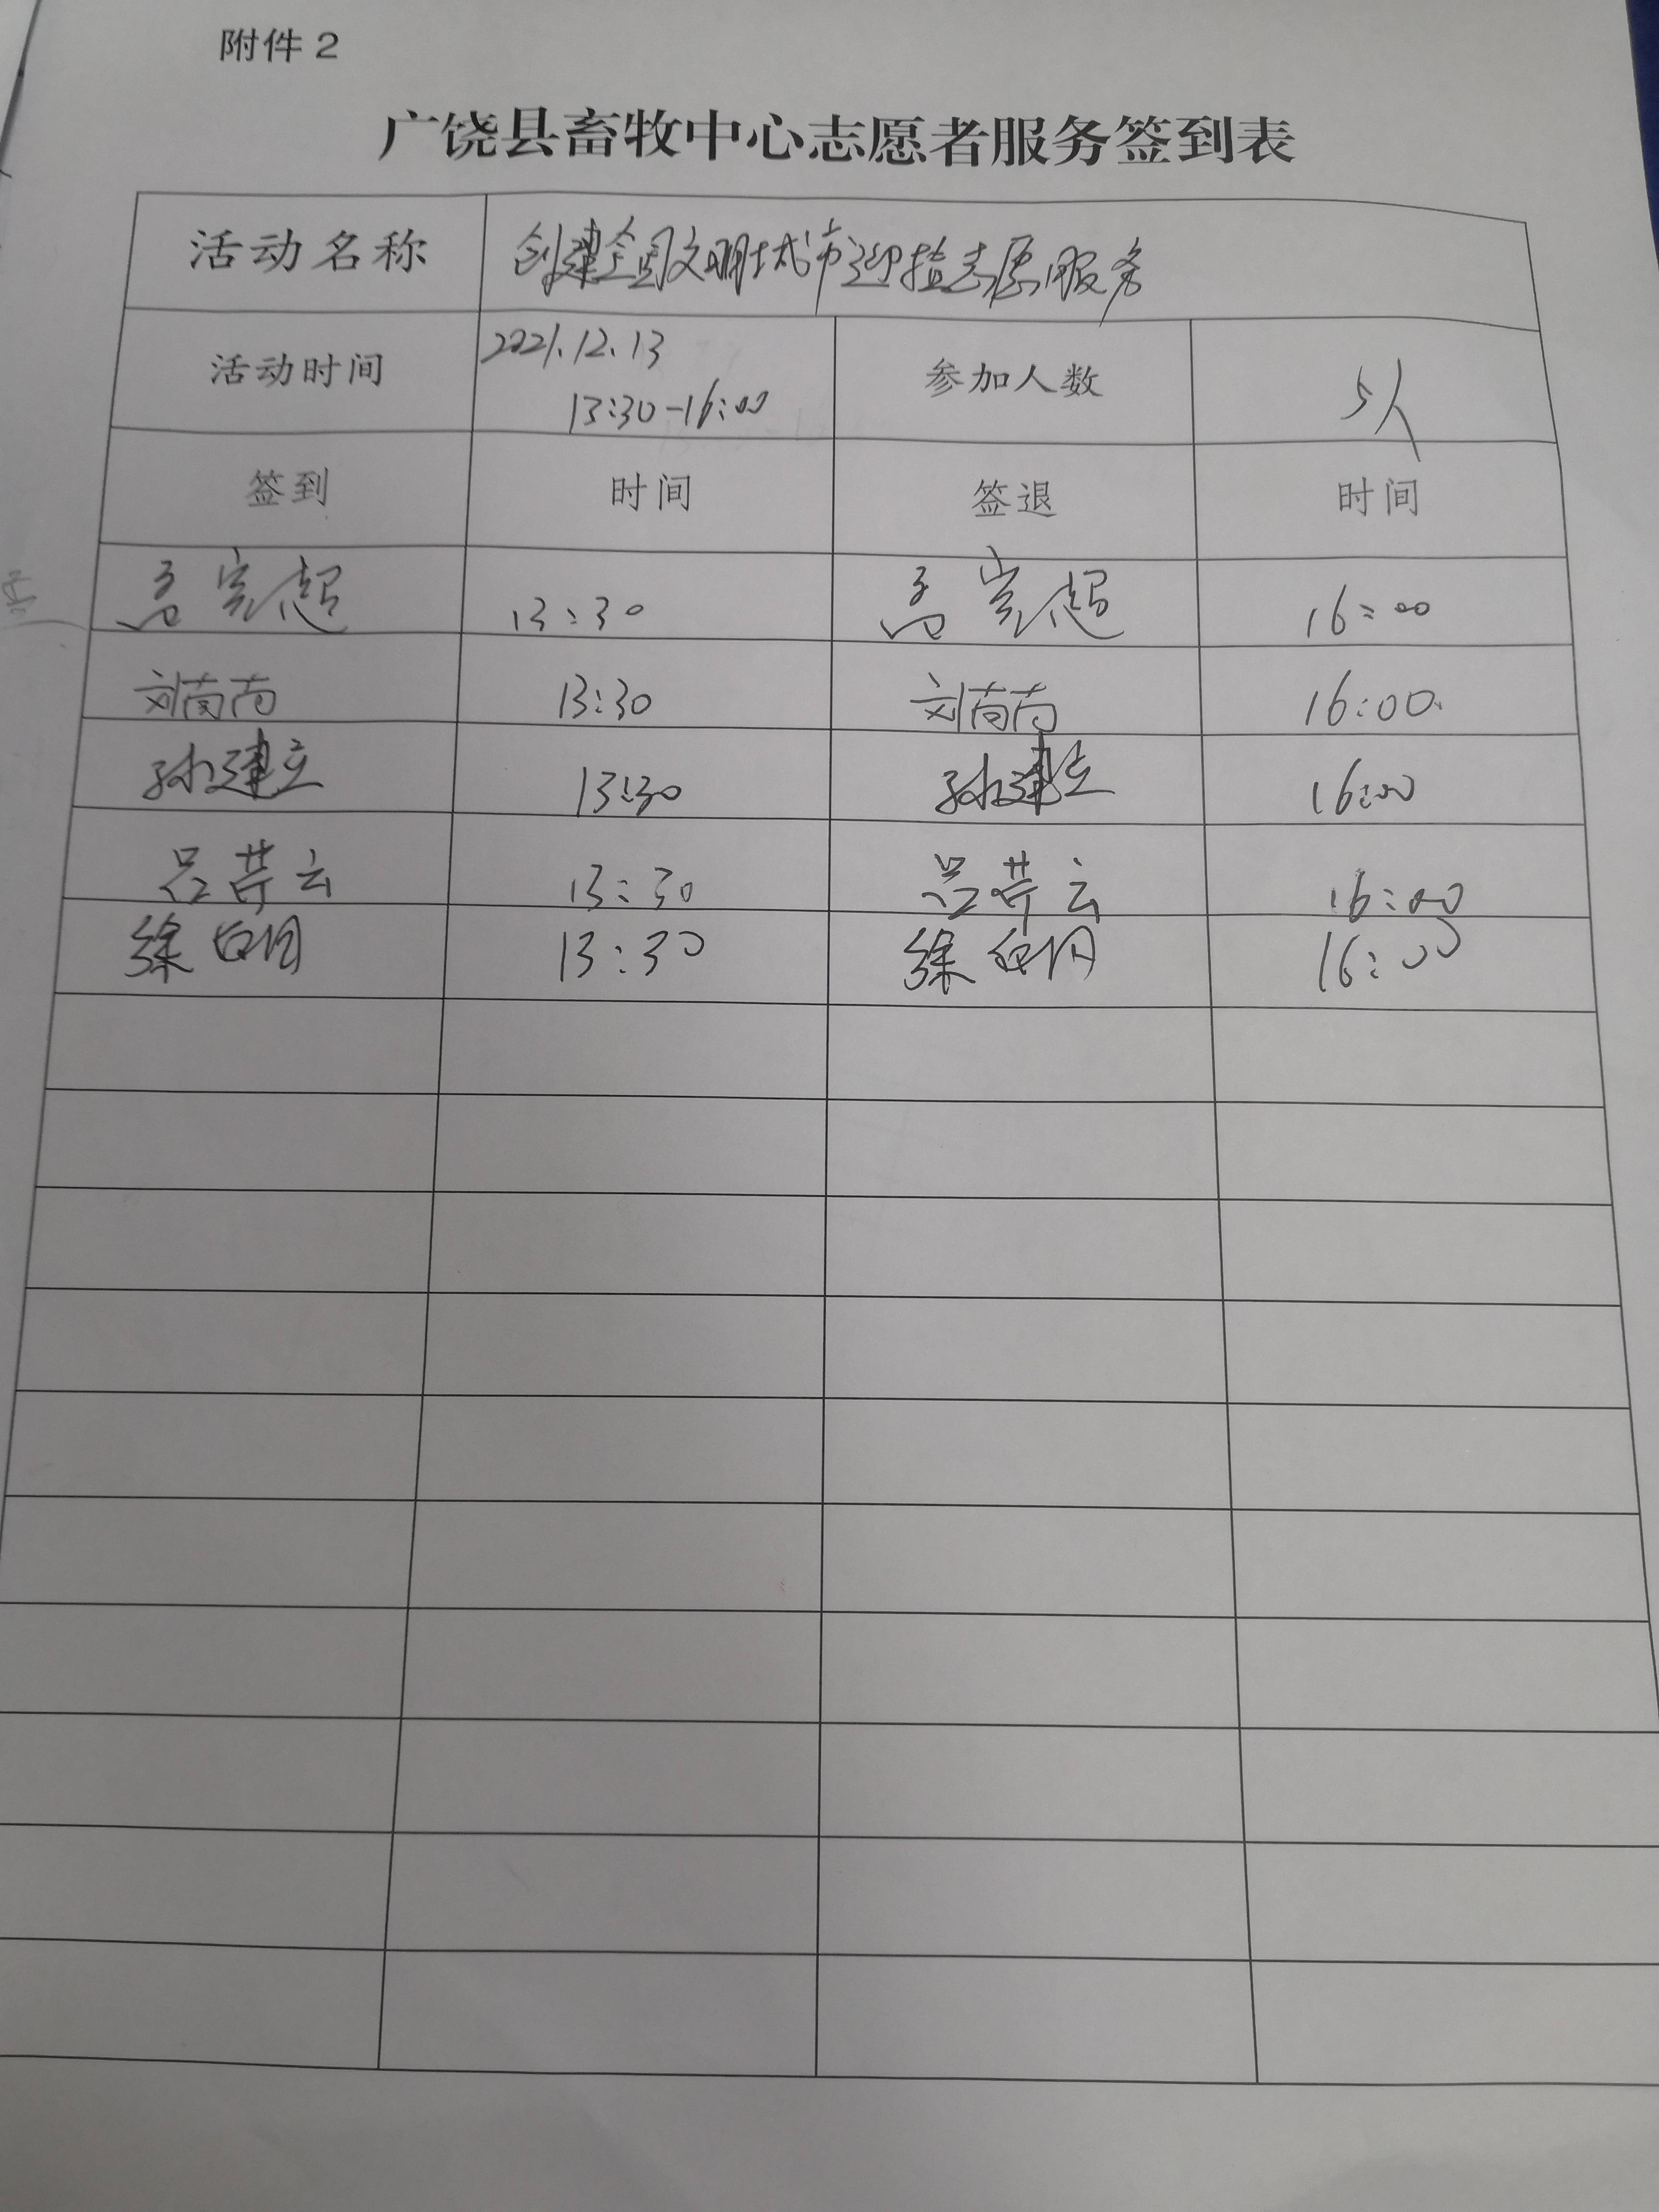 附件2
广饶县畜牧中心志愿者服务签到表
活动名称 创建全国文明城市迎检志愿服务
活动时间 2021.12.13 13:30-16:00 参加人数 5人
签到 时间 签退 时间
13:30 16:00
刘茵茵 13:30 刘茵茵 16:00
孙建立 13:30 孙建立 16:00
吕芹云 13:30 吕芹云 16:00
徐 13:30 徐 16:00